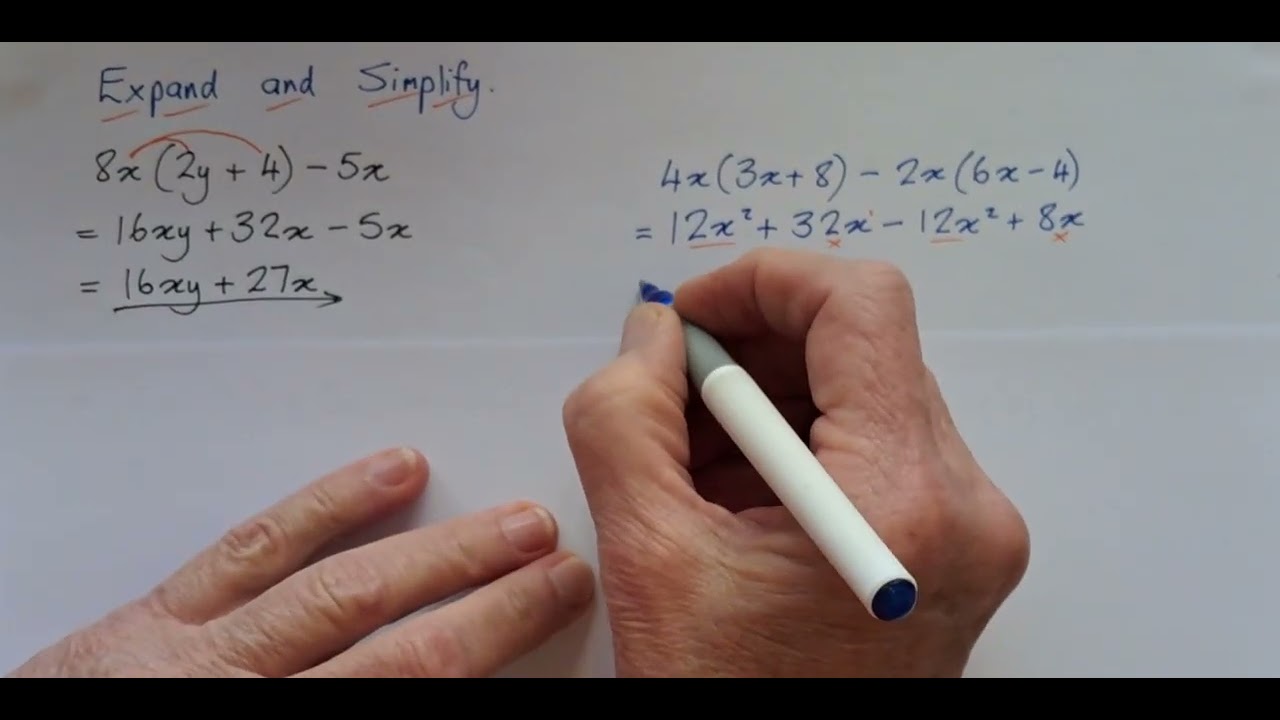 Expand and Simplify.
8x(2y + 4) - 5x
= 16xy + 32x - 5x
= 16xy + 27x
4x(3x + 8) - 2x(6x - 4)
= 12x² + 32x - 12x² + 8x